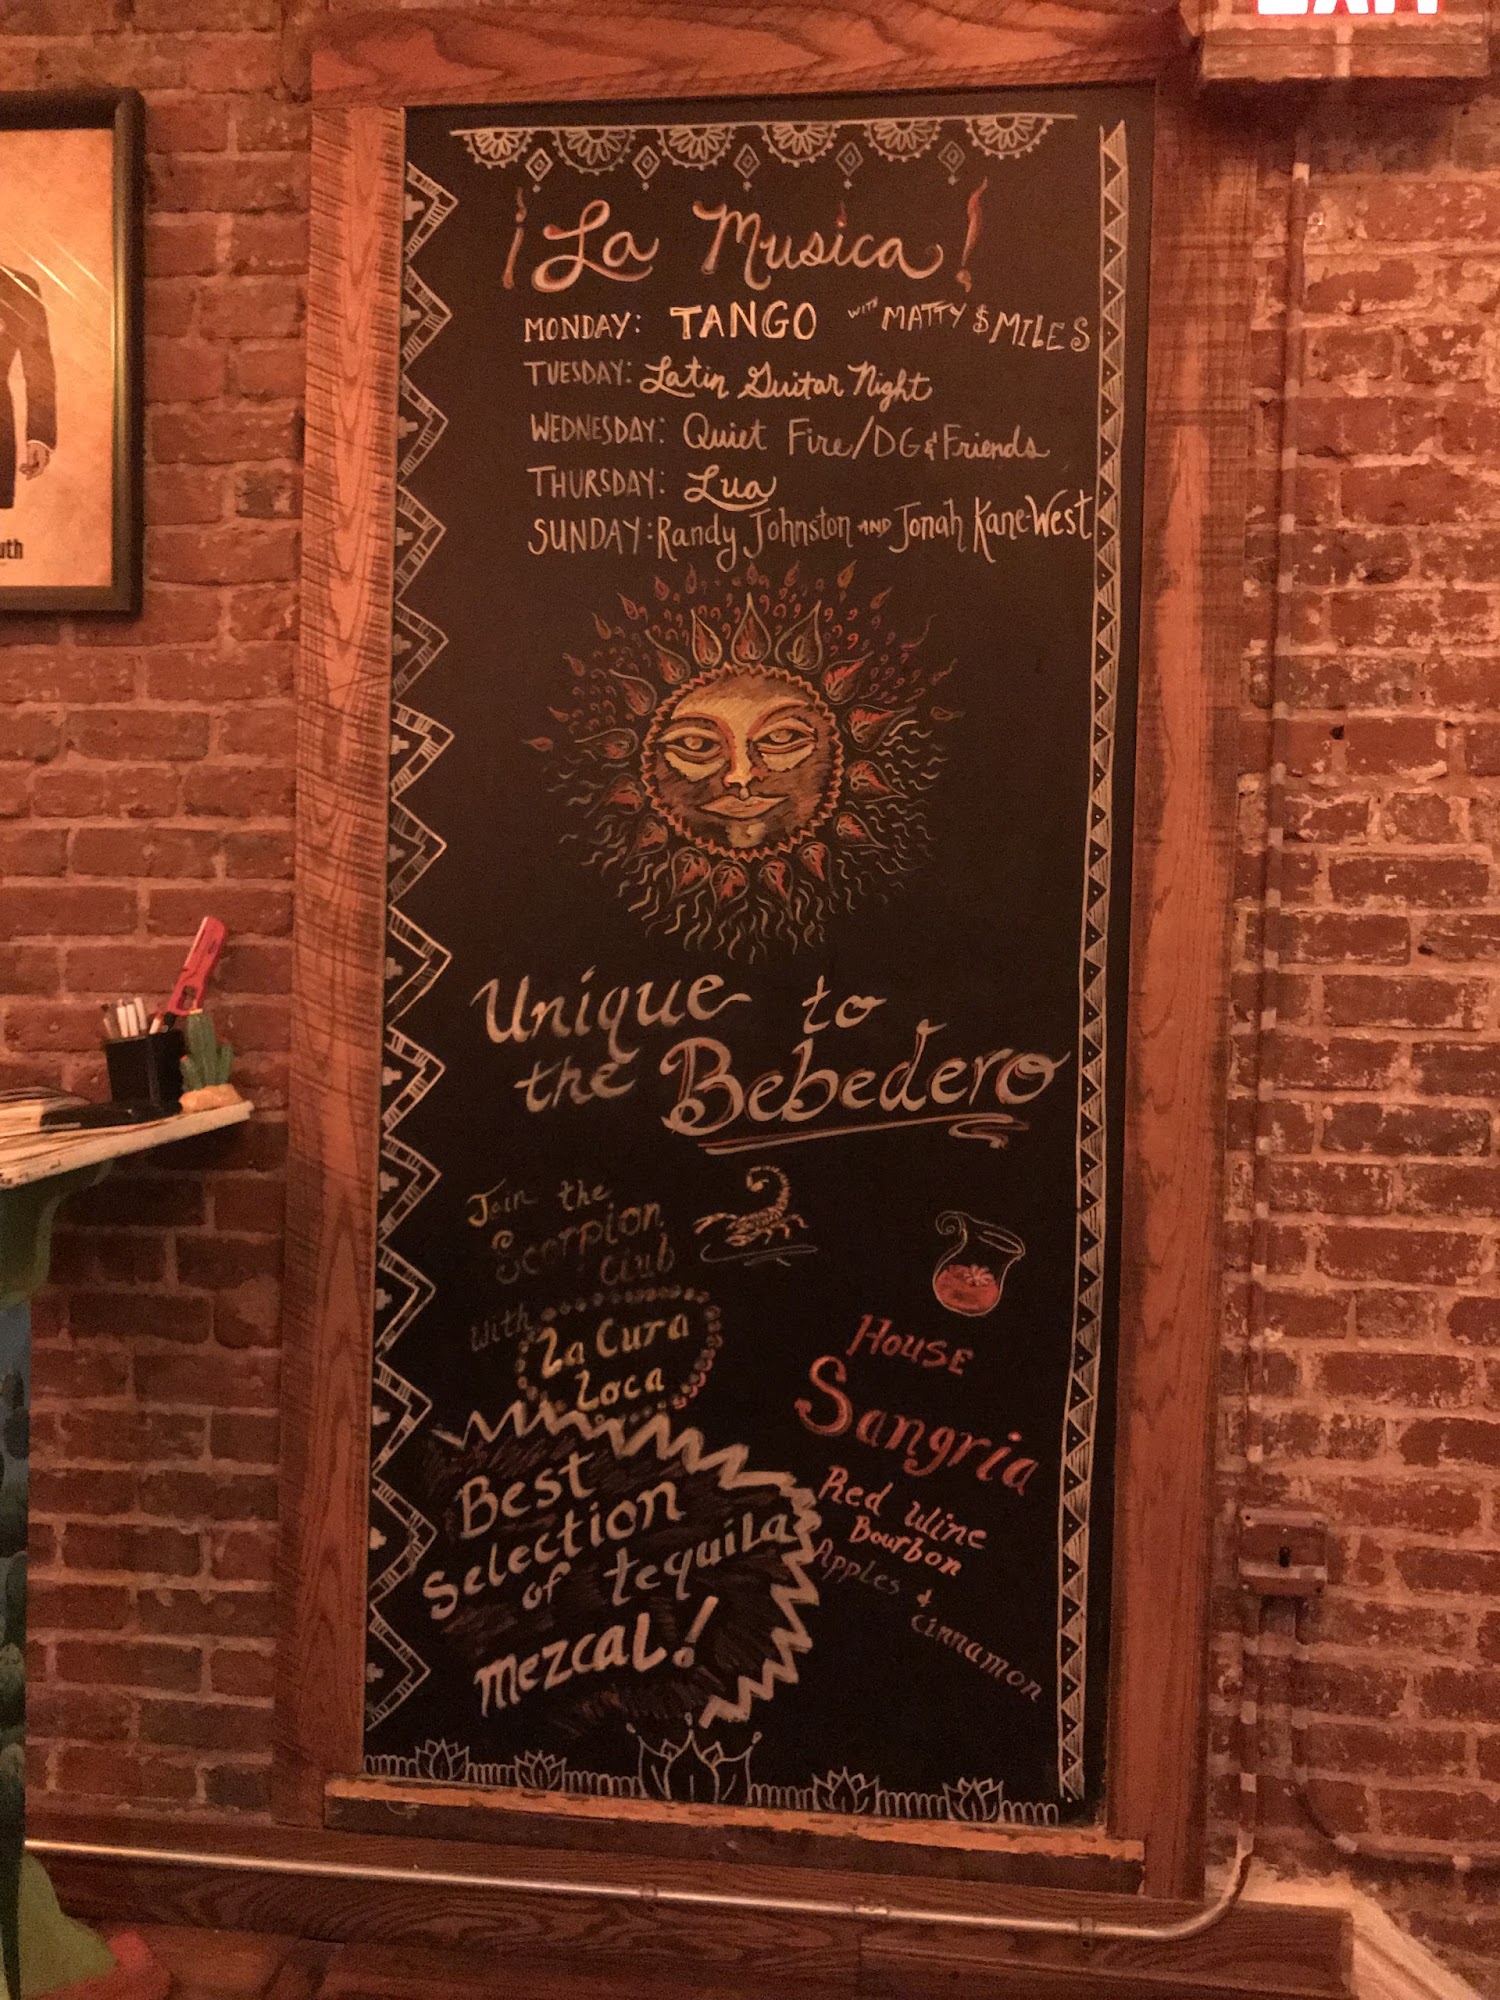 EXIT
¡La Musica!
MONDAY: TANGO WITH MATTY $MILES
TUESDAY: Latin Guitar Night
WEDNESDAY: Quiet Fire/DG & Friends
THURSDAY: Lua
SUNDAY: Randy Johnston AND Jonah Kane-West
uth
Unique to
the Bebedero
Join the
Scorpion
Club
With
La Cura
Loca
House
Sangria
Red Wine
Bourbon
Apples &
Cinnamon
Best
Selection
of tequila
mezcal!